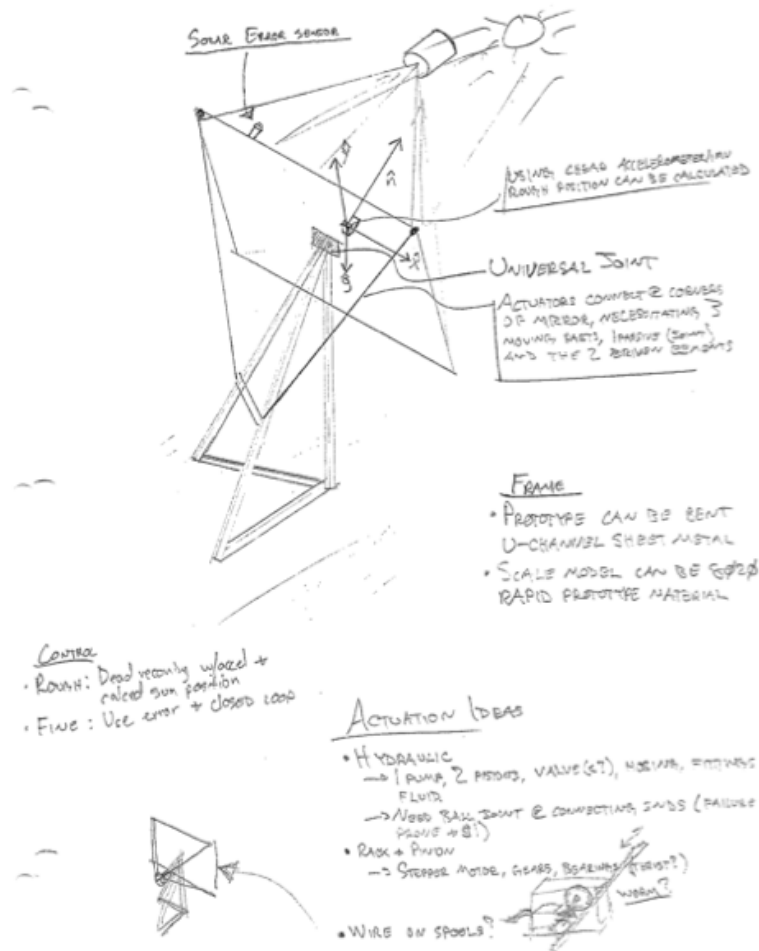 SOLAR ERROR SENSOR
n̂
USING CHEAP ACCELEROMETER/IMU
ROUGH POSITION CAN BE CALCULATED
UNIVERSAL JOINT
ACTUATORS CONNECT @ CORNERS
OF MIRROR, NECESSITATING 3
MOVING PARTS, 1 PASSIVE (JOINT)
AND THE 2 DRIVEN ELEMENTS
FRAME
• PROTOTYPE CAN BE BENT
U-CHANNEL SHEET METAL
• SCALE MODEL CAN BE 8020
RAPID PROTOTYPE MATERIAL
CONTROL
• ROUGH: Dead w/accel +
calced sun position
• FINE: Use error + closed loop
ACTUATION IDEAS
• HYDRAULIC
→ 1 PUMP, 2 PISTONS, VALVE(S?), HOSING, FITTINGS
FLUID
→ NEED BALL JOINT @ CONNECTING ENDS (FAILURE
PRONE + $!)
• RACK + PINION
→ STEPPER MOTOR, GEARS, BEARINGS
WORM?
• WIRE ON SPOOLS?